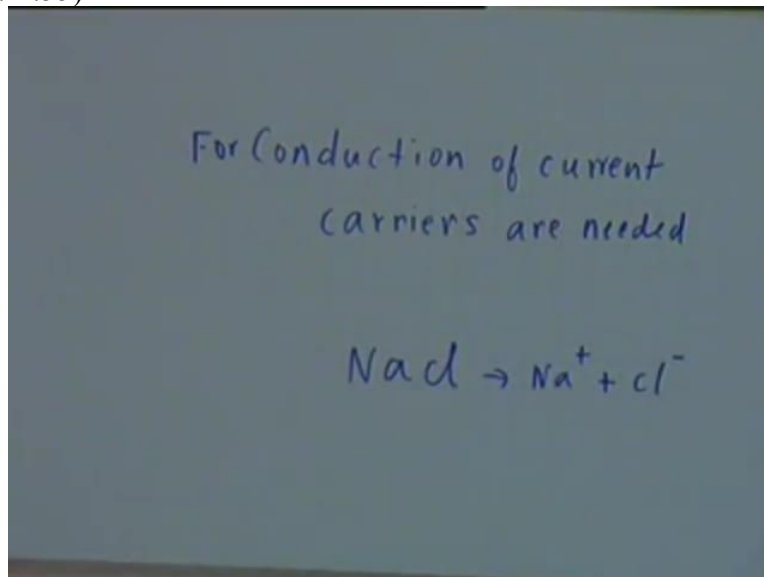 For Conduction of current
carriers are needed
NaCl → Na⁺ + Cl⁻